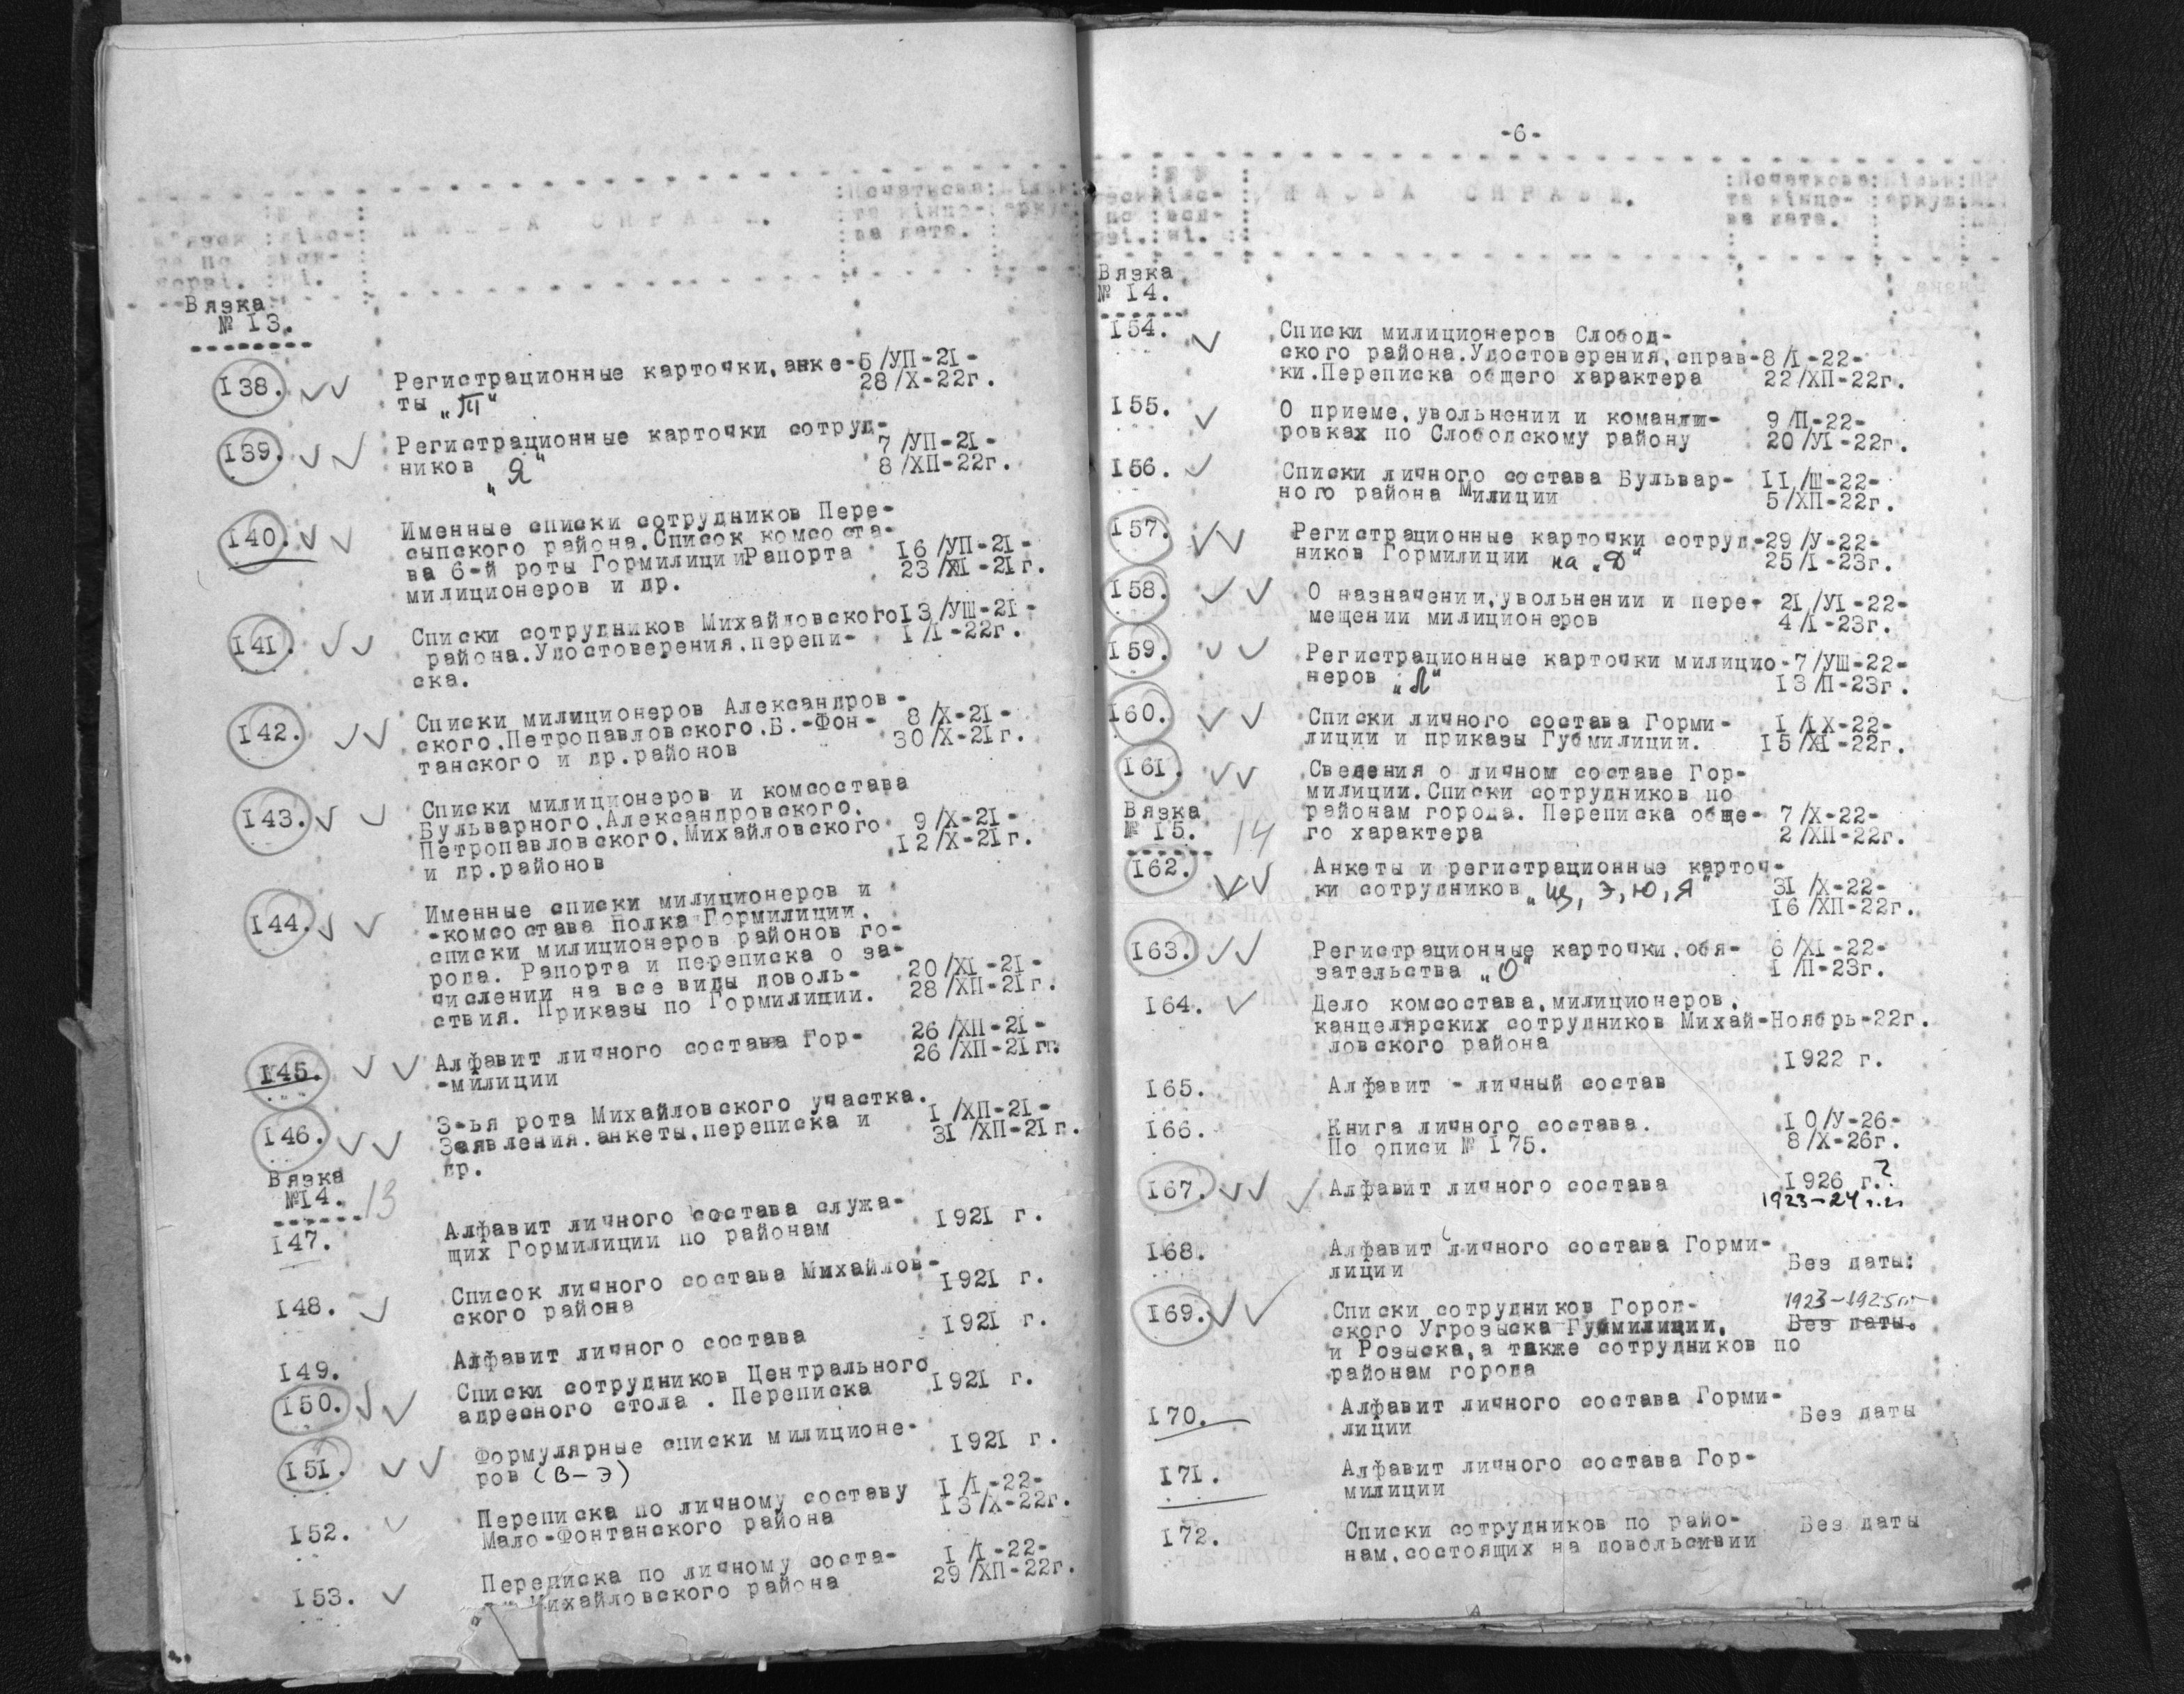 НАЗВА СПРАВИ.
Початкова
та кінце-
ва дата.
Вязка
№ 13.
138. Регистрационные карточки, анке- 5/УП-21-
ты „Т“ 28/Х-22г.
139. Регистрационные карточки сотруд-
ников „Я“ 7/УП-21-
8/ХП-22г.
140. Именные списки сотрудников Пере-
сыпского района. Список комсоста-
ва 6-й роты Гормилиции Рапорта 16/УП-21-
милиционеров и др. 23/XI-21г.
141. Списки сотрудников Михайловского 13/УШ-21-
района. Удостоверения, перепи- 1/I-22г.
ска.
142. Списки милиционеров Александров-
ского, Петропавловского, Б.-Фон- 8/Х-21-
танского и др. районов 30/Х-21г.
143. Списки милиционеров и комсостава
Бульварного, Александровского,
Петропавловского, Михайловского 9/Х-21-
и др. районов 12/Х-21г.
144. Именные списки милиционеров и
-комсостава полка Гормилиции,
списки милиционеров районов го-
рода. Рапорта и переписка о за-
числении на все виды доволь- 20/XI-21-
ствия. Приказы по Гормилиции. 28/ХП-21г.
145. Алфавит личного состава Гор- 26/ХП-21-
-милиции 26/ХП-21гг.
146. 3-ья рота Михайловского участка.
Заявления, анкеты, переписка и 1/ХП-21-
др. 31/ХП-21г.
Вязка
№14. 13
147. Алфавит личного состава служа-
щих Гормилиции по районам 1921 г.
148. Список личного состава Михайлов-
ского района 1921 г.
149. Алфавит личного состава 1921 г.
150. Списки сотрудников Центрального
адресного стола. Переписка 1921 г.
151. Формулярные списки милиционе-
ров (В-Э) 1921 г.
152. Переписка по личному составу 1/I-22-
Мало-Фонтанского района 13/Х-22г.
153. Переписка по личному соста- 1/I-22-
Михайловского района 29/ХП-22г.
-6-
НАЗВА СПРАВИ.
Початкова
та кінце-
ва дата.
Вязка
№ 14.
154. Списки милиционеров Слобод-
ского района. Удостоверения, справ- 8/I-22-
ки. Переписка общего характера 22/ХП-22г.
155. О приеме, увольнении и команди- 9/П-22-
ровках по Слободскому району 20/УI-22г.
156. Списки личного состава Бульвар- 11/Ш-22-
ного района Милиции 5/ХП-22г.
157. Регистрационные карточки сотруд- 29/У-22-
ников Гормилиции на „Д“ 25/I-23г.
158. О назначении, увольнении и пере- 21/УI-22-
мещении милиционеров 4/I-23г.
159. Регистрационные карточки милицио- 7/УШ-22-
неров „Л“ 13/П-23г.
160. Списки личного состава Горми- 1/IX-22-
лиции и приказы Губмилиции. 15/XI-22г.
161. Сведения о личном составе Гор-
милиции. Списки сотрудников по
районам города. Переписка обще- 7/Х-22-
го характера 2/ХП-22г.
Вязка
№ 15. 14
162. Анкеты и регистрационные карточ-
ки сотрудников „Щ, Э, Ю, Я“ 31/Х-22-
16/ХП-22г.
163. Регистрационные карточки, обя- 6/XI-22-
зательства „О“ 1/П-23г.
164. Дело комсостава, милиционеров,
канцелярских сотрудников Михай- Ноябрь-22г.
ловского района
165. Алфавит - личный состав 1922 г.
166. Книга личного состава. 10/У-26-
По описи № 175. 8/Х-26г.
167. Алфавит личного состава 1926 г.?
1923-24 г.г.
168. Алфавит личного состава Горми-
лиции Без даты:
169. Списки сотрудников Город- 1923-1925гг
ского Угрозыска Губмилиции, Без даты.
и Розыска, а также сотрудников по
районам города
170. Алфавит личного состава Горми-
лиции Без даты
171. Алфавит личного состава Гор-
милиции
172. Списки сотрудников по райо- Без даты
нам, состоящих на довольсивии